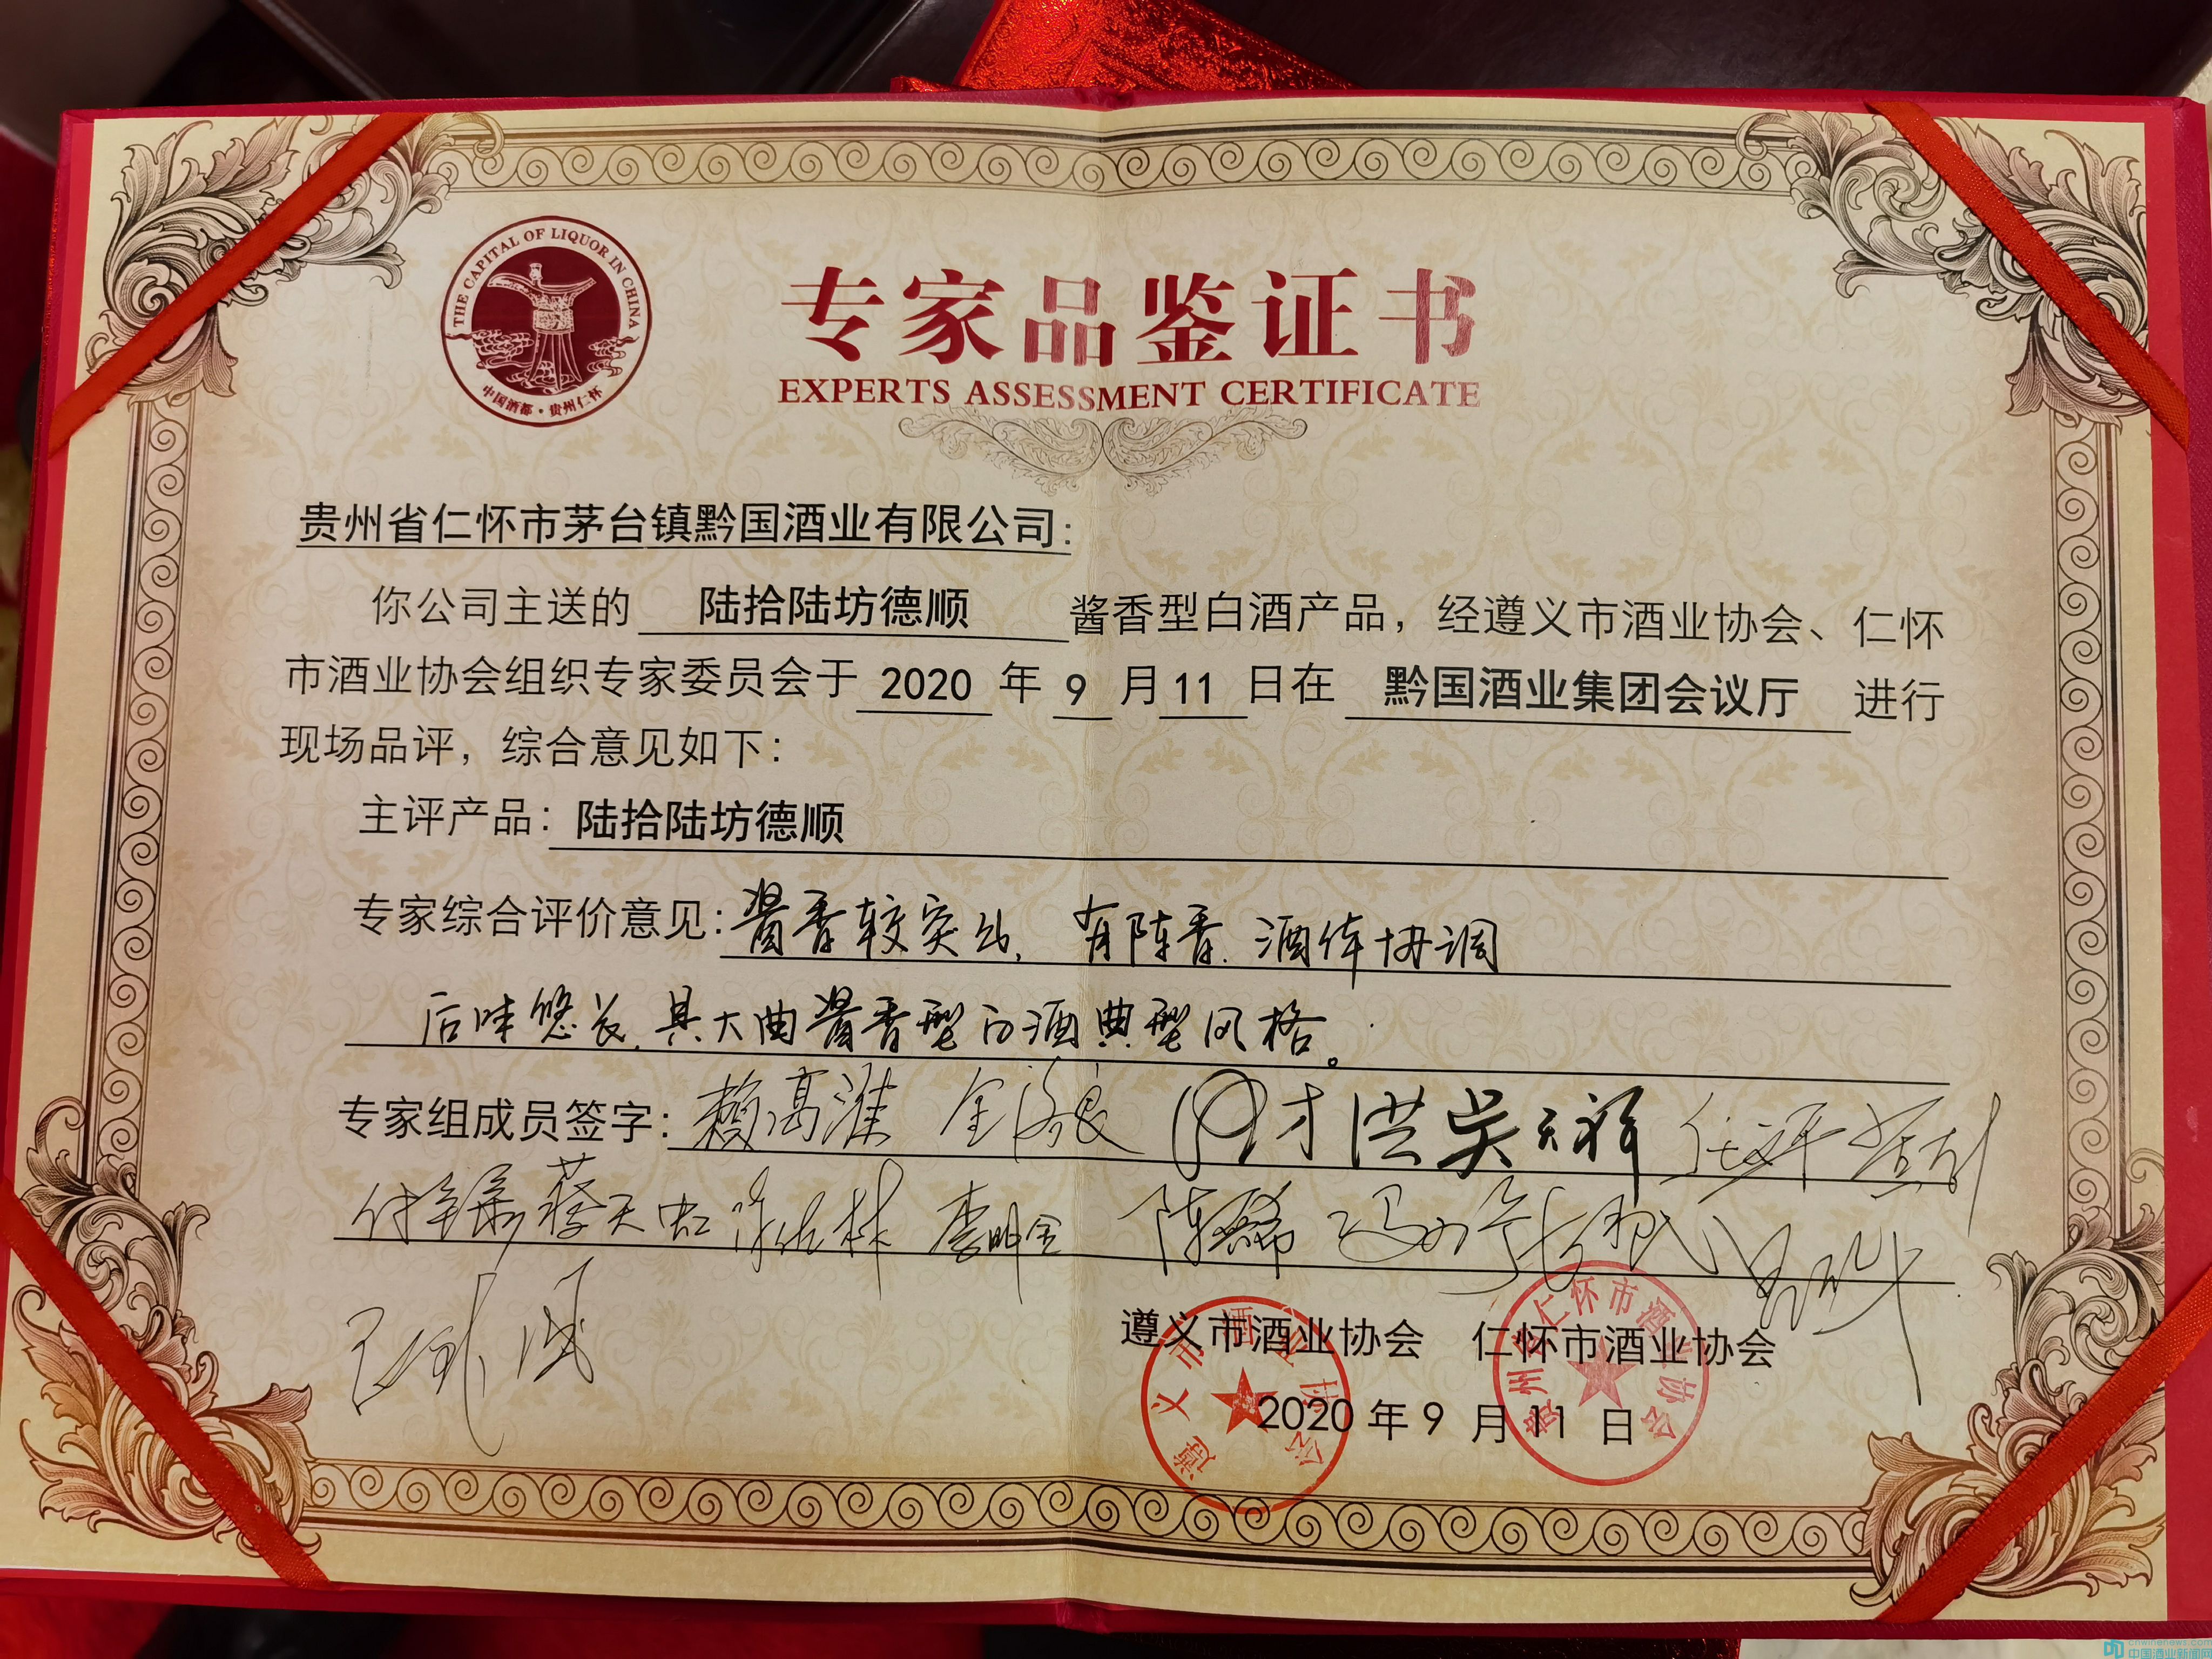 THE CAPITAL OF LIQUOR IN CHINA
中国酒都·贵州仁怀
专家品鉴证书
EXPERTS ASSESSMENT CERTIFICATE
贵州省仁怀市茅台镇黔国酒业有限公司:
你公司主送的 陆拾陆坊德顺 酱香型白酒产品，经遵义市酒业协会、仁怀
市酒业协会组织专家委员会于 2020 年 9 月 11 日在 黔国酒业集团会议厅 进行
现场品评，综合意见如下：
主评产品：陆拾陆坊德顺
专家综合评价意见：酱香较突出，有陈香，酒体协调
后味悠长，具大曲酱香型白酒典型风格。
专家组成员签字：赖高淮 吴天祥
蔡天虹 李明金
遵义市酒业协会 仁怀市酒业协会
2020 年 9 月 11 日
遵义市酒业协会
贵州省仁怀市酒业协会
cnwinenews.com
中国酒业新闻网